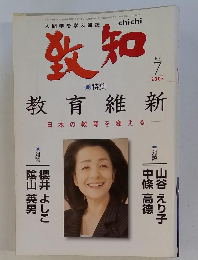 人間学を学ぶ月刊誌
chichi
致知
7
特集
教育維新
日本の教育を変える
対談
山谷えり子
中條高德
対談
櫻井よしこ
陰山英男